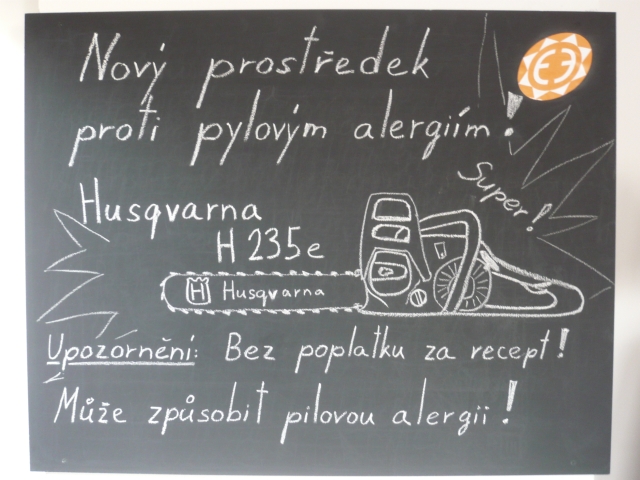 Nový prostředek
proti pylovým alergiím!
Super!
Husqvarna
H 235e
H Husqvarna
Upozornění: Bez poplatku za recept!
Může způsobit pilovou alergii!